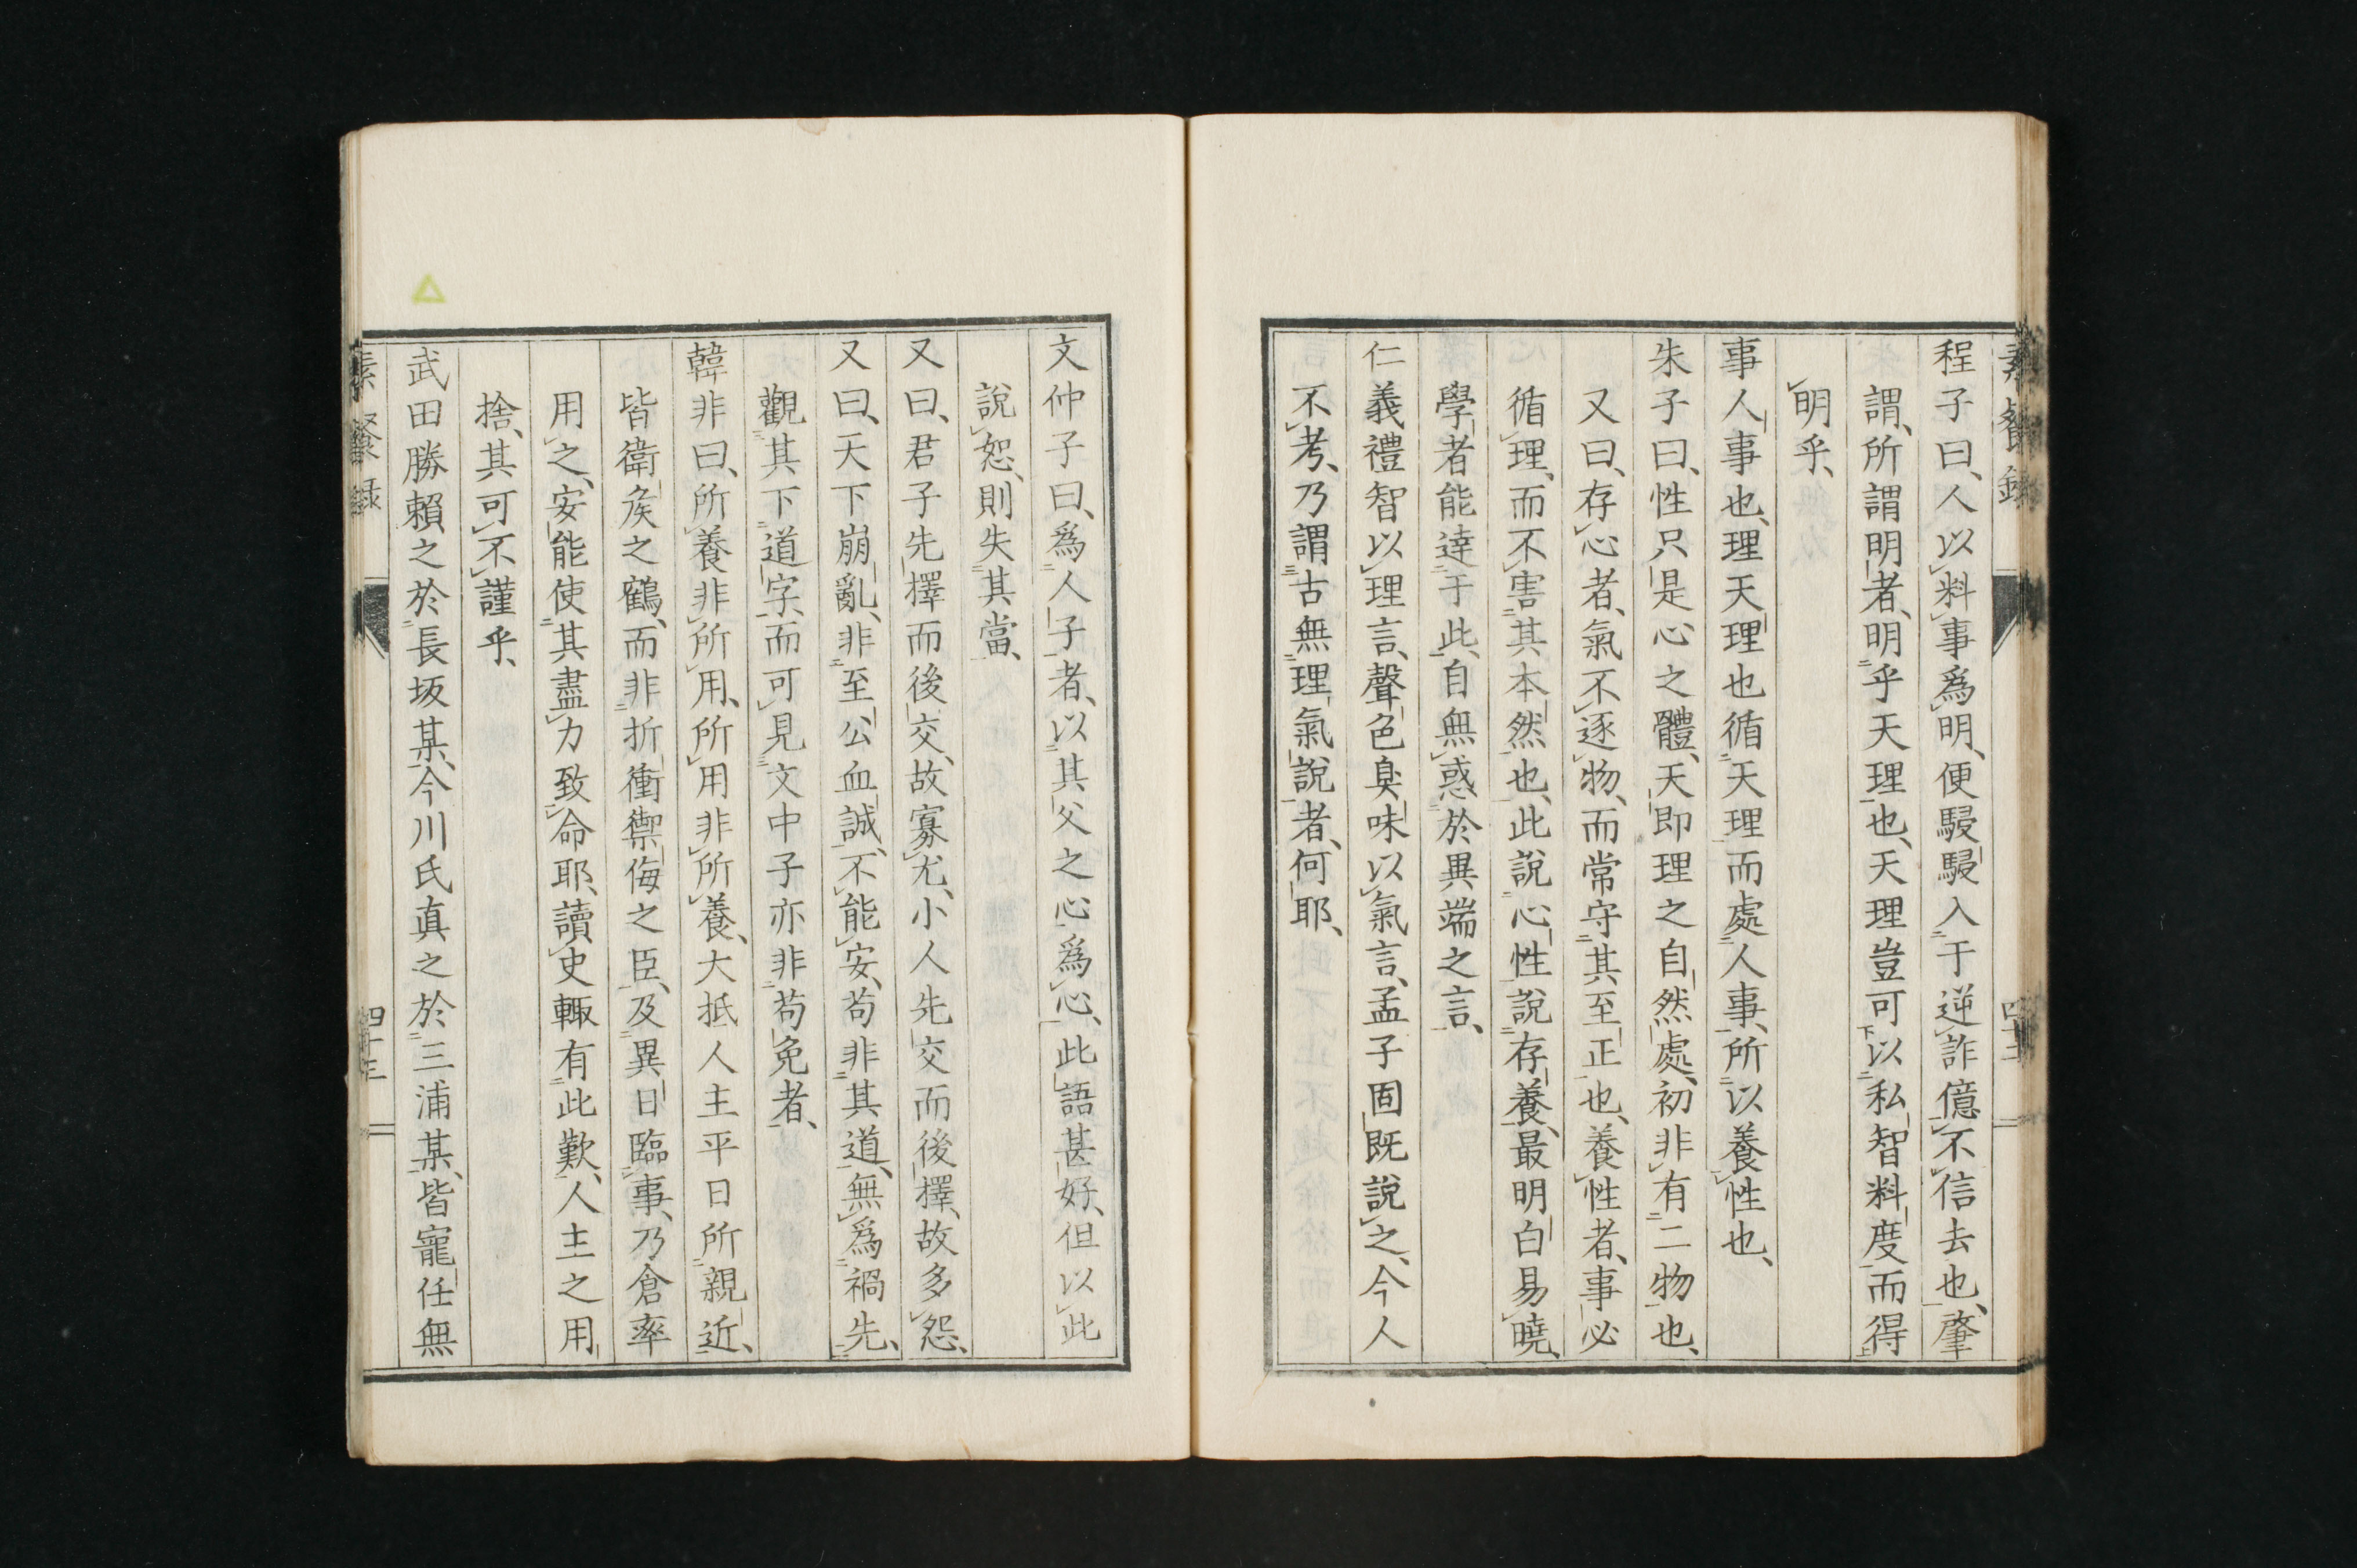 程子曰、人以料事爲明、便駸駸入于逆詐億不信去也、肇
謂、所謂明者、明乎天理也、天理豈可以私智料度而得
明乎、
事人事也、理天理也循天理而處人事、所以養性也、
朱子曰、性只是心之體、天即理之自然處、初非有二物也、
又曰、存心者、氣不逐物、而常守其至正也、養性者、事必
循理、而不害其本然也、此說心性說存養、最明白易曉、
學者能達于此、自無惑於異端之言、
仁義禮智以理言、聲色臭味以氣言、孟子固既說之、今人
不考、乃謂古無理氣說者、何耶、
文仲子曰、爲人子者、以其父之心爲心、此語甚好、但以此
說恕、則失其當、
又曰、君子先擇而後交、故寡尤、小人先交而後擇、故多怨、
又曰、天下崩亂、非至公血誠、不能安、苟非其道、無爲禍先、
觀其下道字、而可見文中子亦非苟免者、
韓非曰、所養非所用、所用非所養、大抵人主平日所親近、
皆衛矦之鶴、而非折衝禦侮之臣、及異日臨事、乃倉率
用之、安能使其盡力致命耶、讀史輙有此歎、人主之用
捨、其可不謹乎、
武田勝賴之於長坂某、今川氏真之於三浦某、皆寵任無
素餐録
四十三